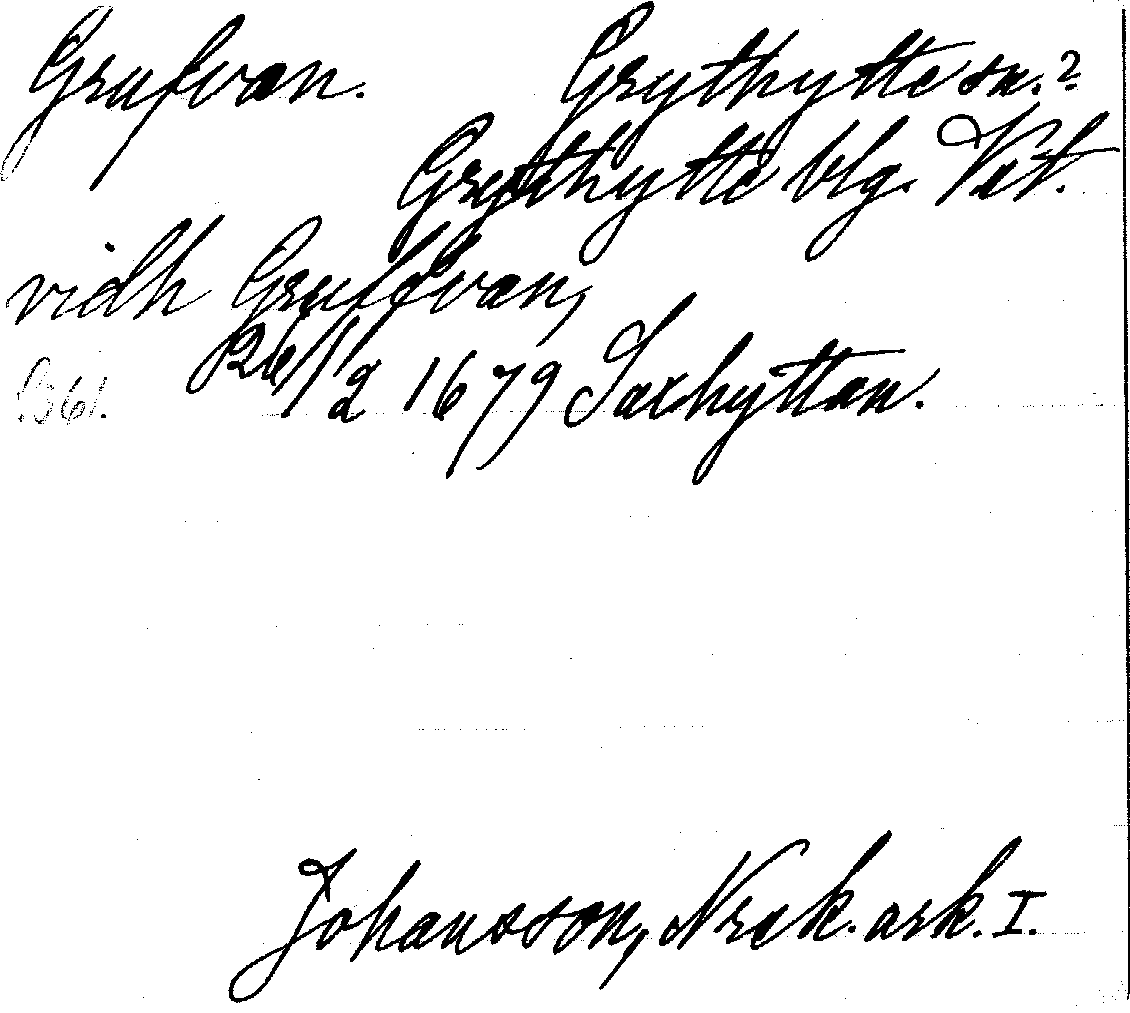 Grufvan. Grythytte sn.?
Grythytte blg. Vst.
vidh Gruffvan,
26/12 1679 Saxhyttan.
S. 361.
Johansson, Nrak. ark. I.